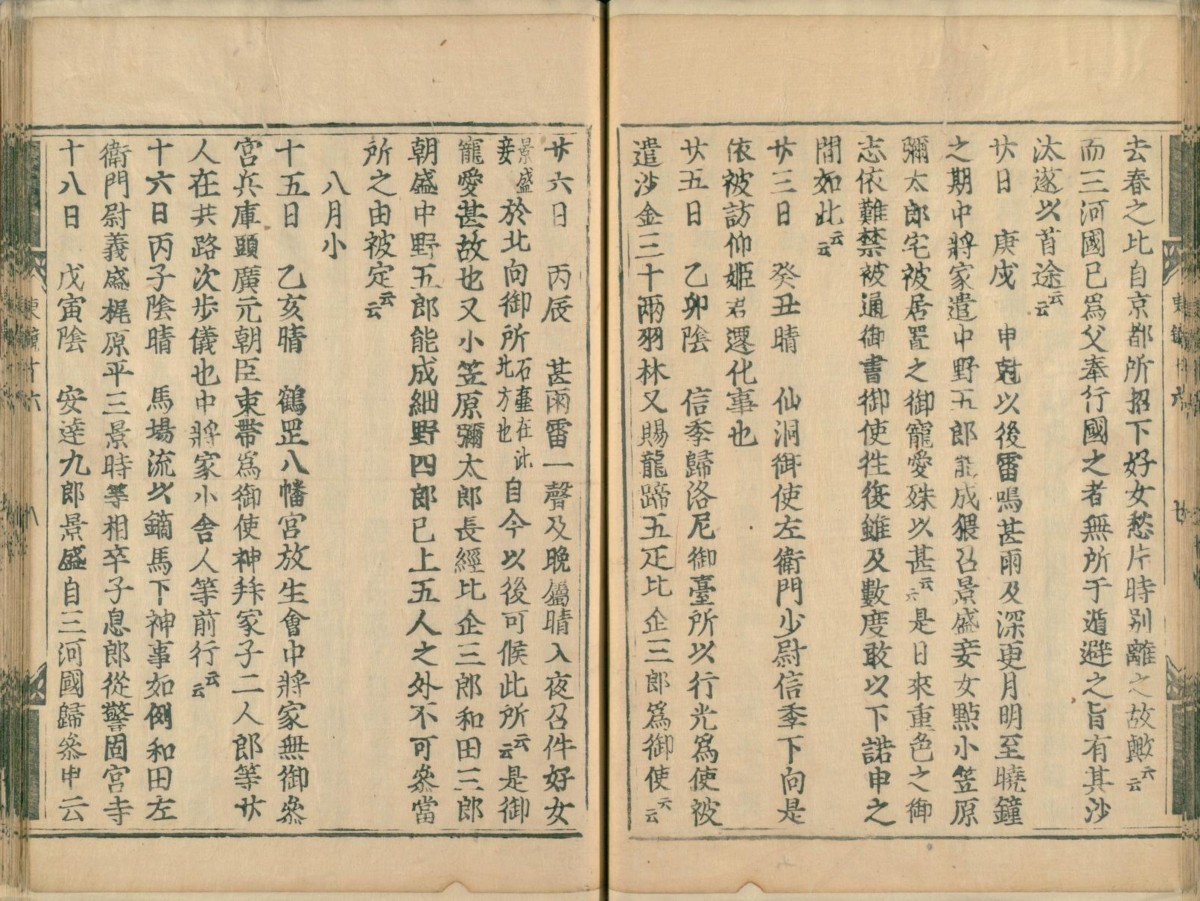 去春之比自京都所招下好女愁片時別離之故歟云云
而三河國已爲父奉行國之者無所于遁避之旨有其沙
汰遂以首途云云
廿日　庚戌　申尅以後雷鳴甚雨及深更月明至曉鐘
之期中將家遣中野五郎能成猥召景盛妾女點小笠原
彌太郎宅被居置之御寵愛殊以甚云云是日來重色之御
志依難禁被通御書御使往復雖及數度敢以下諾申之
間如此云云
廿三日　癸丑晴　仙洞御使左衛門少尉信季下向是
依被訪仰姬君遷化事也
廿五日　乙卯陰　信季歸洛尼御臺所以行光爲使被
遣沙金三十兩羽林又賜龍蹄五疋比企三郎爲御使云云
東鑑十六
廿六日　丙辰　甚雨雷一聲及晚屬晴入夜召件好女
景盛妾於北向御所石壷在此北方也自今以後可候此所云云是御
寵愛甚故也又小笠原彌太郎長經比企三郎和田三郎
朝盛中野五郎能成細野四郎已上五人之外不可參當
所之由被定云云
八月小
十五日　乙亥晴　鶴罡八幡宮放生會中將家無御參
宮兵庫頭廣元朝臣束帶爲御使神拜家子二人郎等廿
人在共路次步儀也中將家小舍人等前行云云
十六日丙子陰晴　馬場流以鏑馬下神事如例和田左
衛門尉義盛梶原平三景時等相卒子息郎從警固宮寺
十八日　戊寅陰　安達九郎景盛自三河國歸參申云
東鑑十六
八